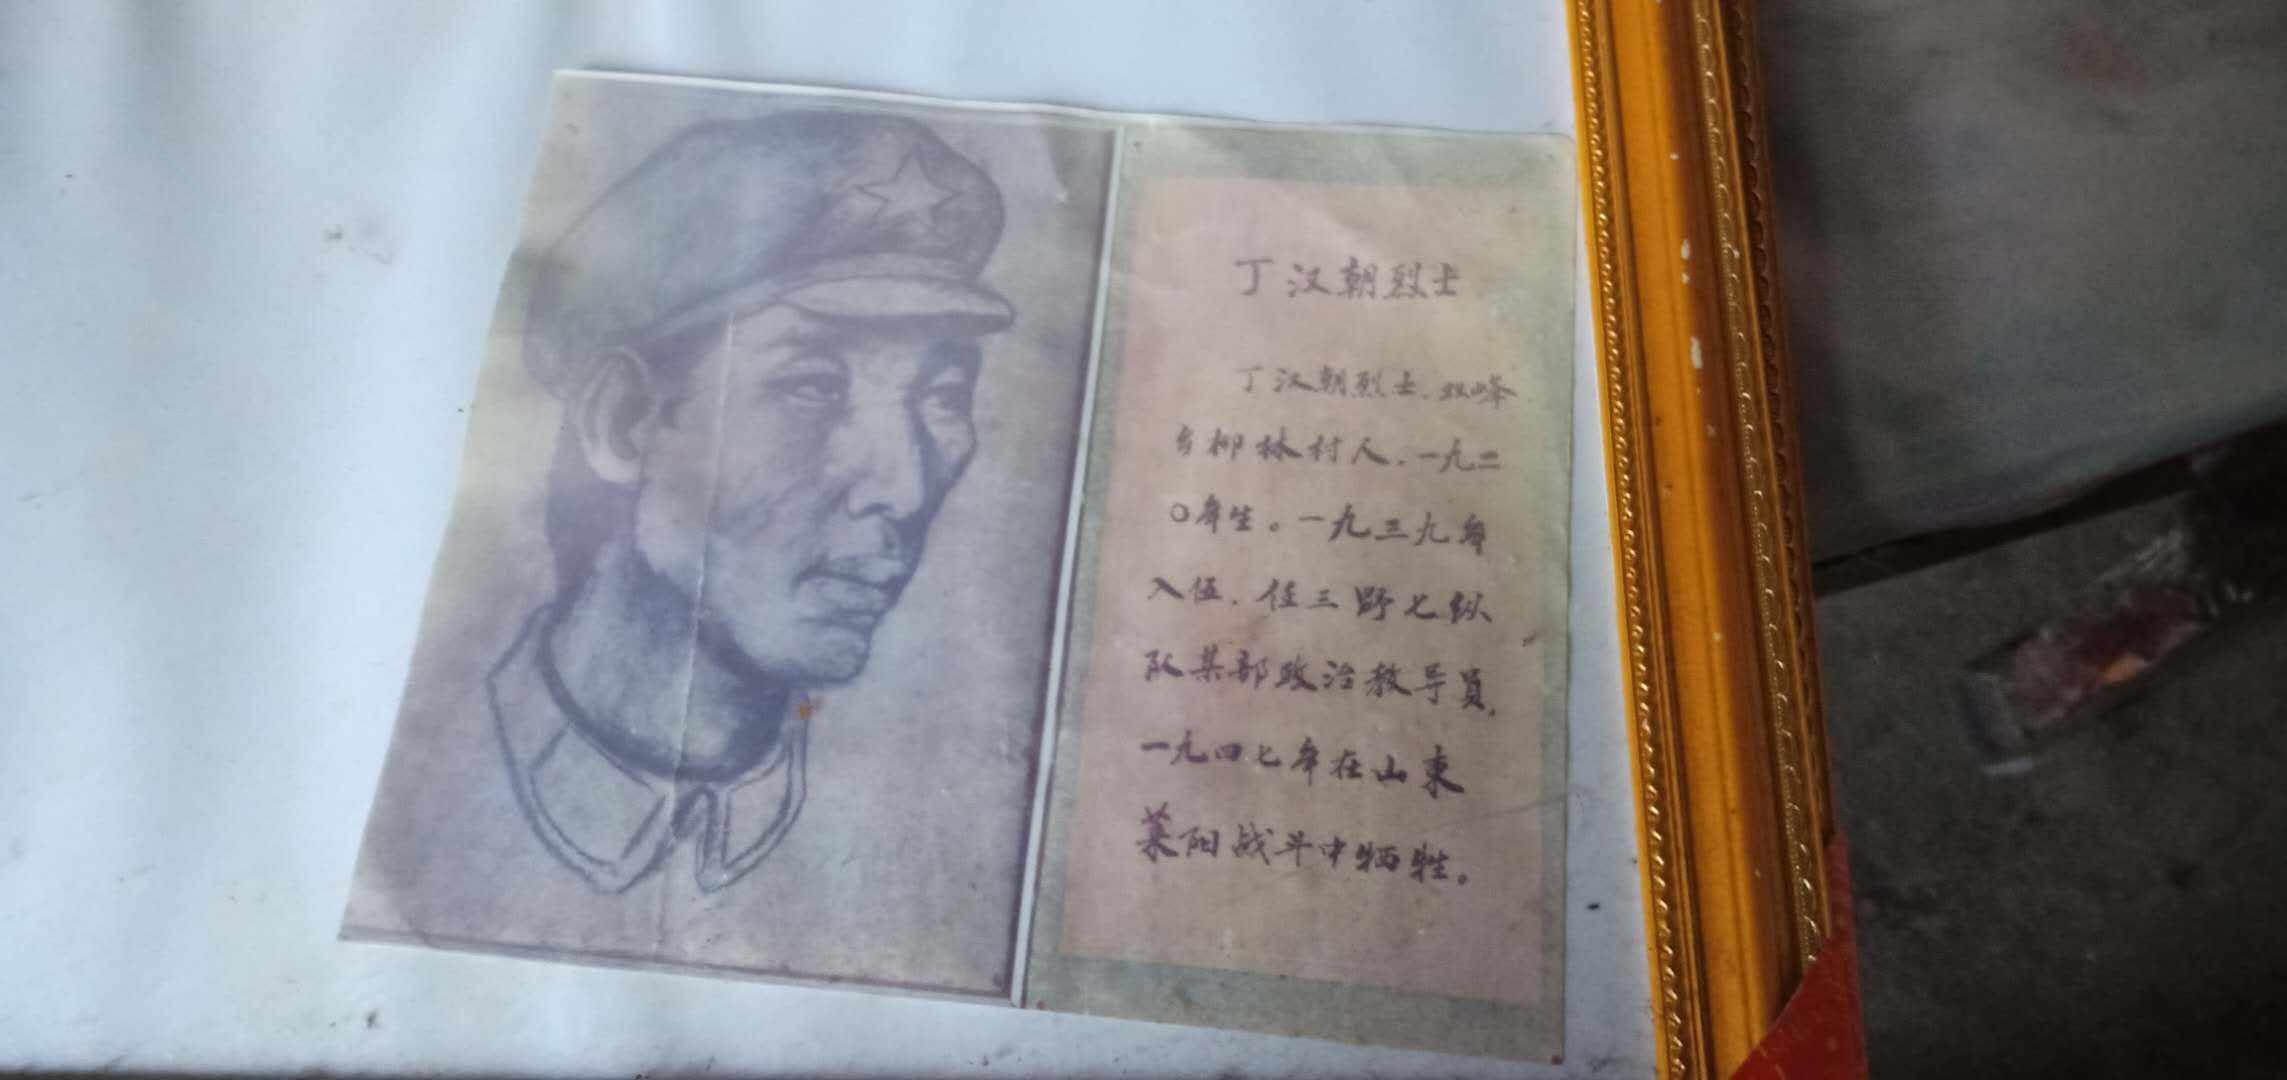 丁汉朝烈士
丁汉朝烈士.双峰
乡柳林村人.一九二
〇年生。一九三九年
入伍.任三野七纵
队某部政治教导員,
一九四七年在山东
莱阳战斗中牺牲。